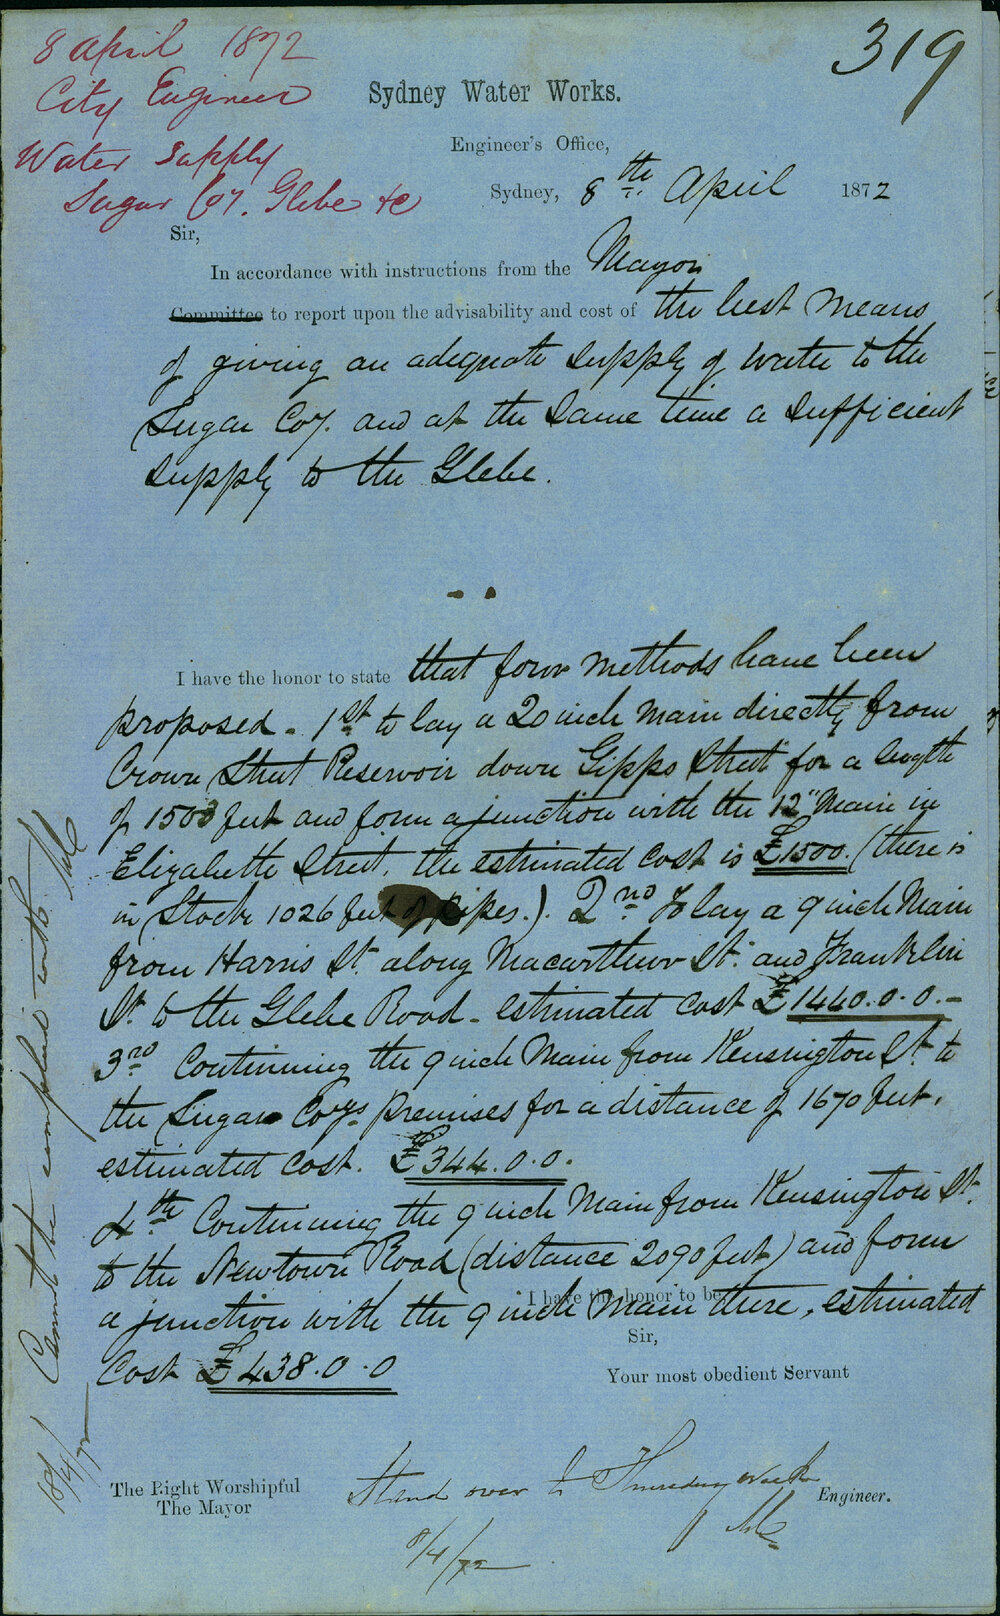 319
8 April 1872
City Engineer
Water Supply
Sugar Coy. Glebe &c
Sydney Water Works.
Engineer's Office,
Sydney, 8th April 1872
Sir,
In accordance with instructions from the Mayor
Committee to report upon the advisability and cost of the best means
of giving an adequate supply of water to the
Sugar Coy. and at the same time a sufficient
supply to the Glebe.
I have the honor to state that four methods have been
proposed - 1st to lay a 20 inch main directly from
Crown Street Reservoir down Gipps Street for a length
of 1503 feet and form a junction with the 12" Main in
Elizabeth Street. the estimated cost is £1500. (there is
in Stock 1026 feet of pipes.). 2nd To lay a 9 inch Main
from Harris St. along Macarthur St. and Franklin
St. to the Glebe Road - estimated cost £1440.0.0.-
3rd Continuing the 9 inch Main from Kensington St. to
the Sugar Coys. premises for a distance of 1670 feet.
estimated cost. £344.0.0.
4th Continuing the 9 inch Main from Kensington St.
to the Newtown Road (distance 2090 feet) and form
a junction with the 9 inch Main there, estimated
cost £438.0.0
I have the honor to be
Sir,
Your most obedient Servant
Engineer.
The Right Worshipful
The Mayor
Stand over to Thursday Week
9/4/72
Cannot be complied with.
18/4/72